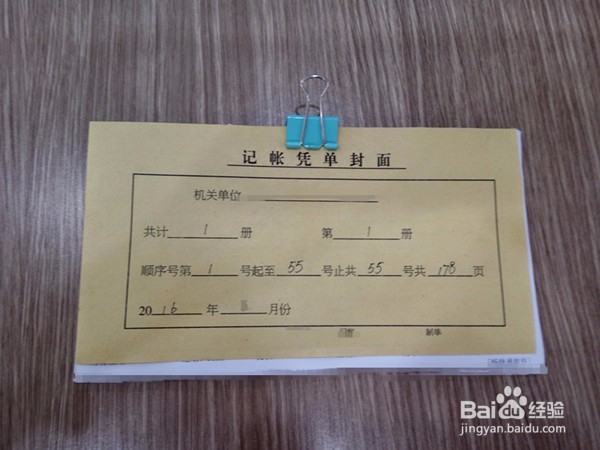 记帐凭单封面
机关单位
共计 1 册 第 1 册
顺序号第 1 号起至 55 号止共 55 号共 178 页
2016 年 月份
制单
Baidu经验
jingyan.baidu.com